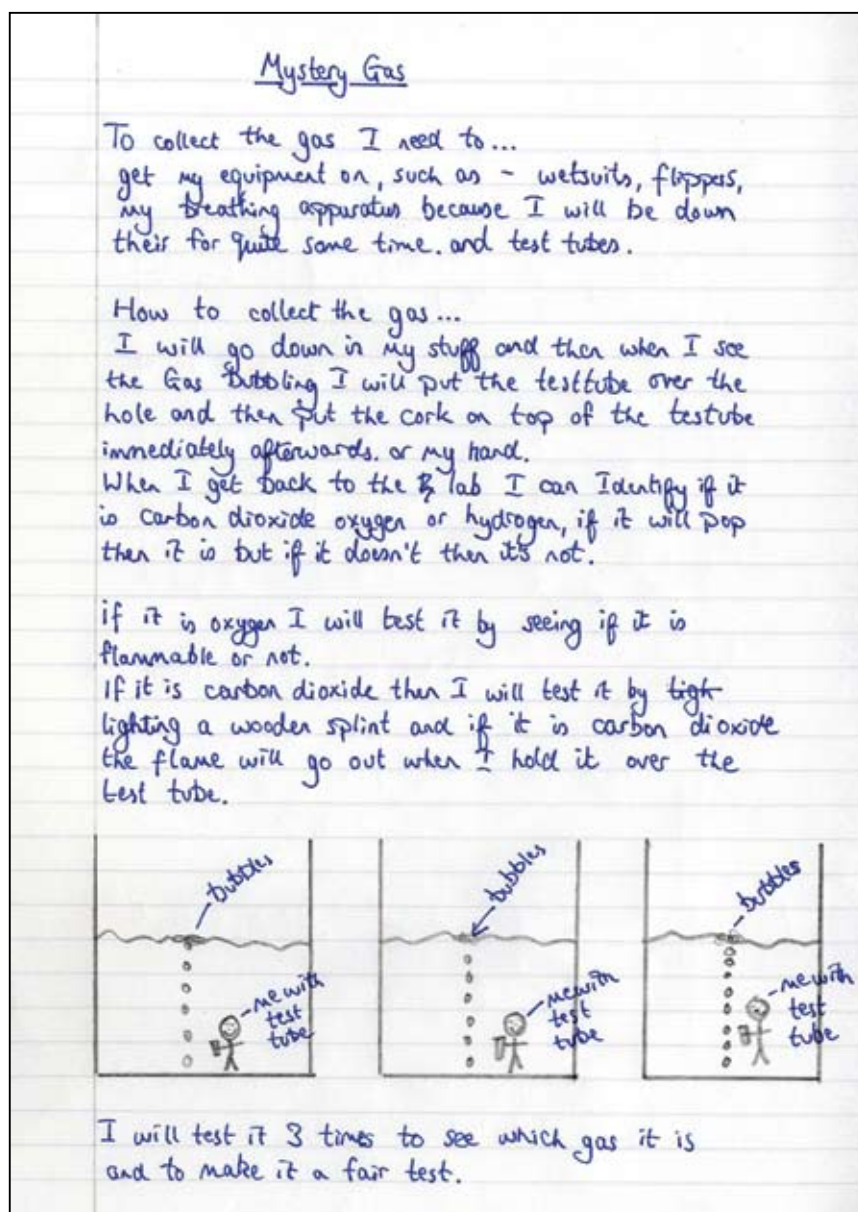 Mystery Gas
To collect the gas I need to...
get my equipment on, such as - wetsuits, flippers,
my breathing apparatus because I will be down
their for quite some time. and test tubes.
How to collect the gas...
I will go down in my stuff and then when I see
the Gas Bubbling I will put the testtube over the
hole and then put the cork on top of the testube
immediately afterwards. or my hand.
When I get back to the lab I can Identify if it
is carbon dioxide oxygen or hydrogen, if it will pop
then it is but if it doesn't then it's not.
if it is oxygen I will test it by seeing if it is
flammable or not.
If it is carbon dioxide then I will test it by ligh
lighting a wooden splint and if it is carbon dioxide
the flame will go out when I hold it over the
test tube.
bubbles
me with
test
tube
bubbles
me with
test
tube
bubbles
me with
test
tube
I will test it 3 times to see which gas it is
and to make it a fair test.